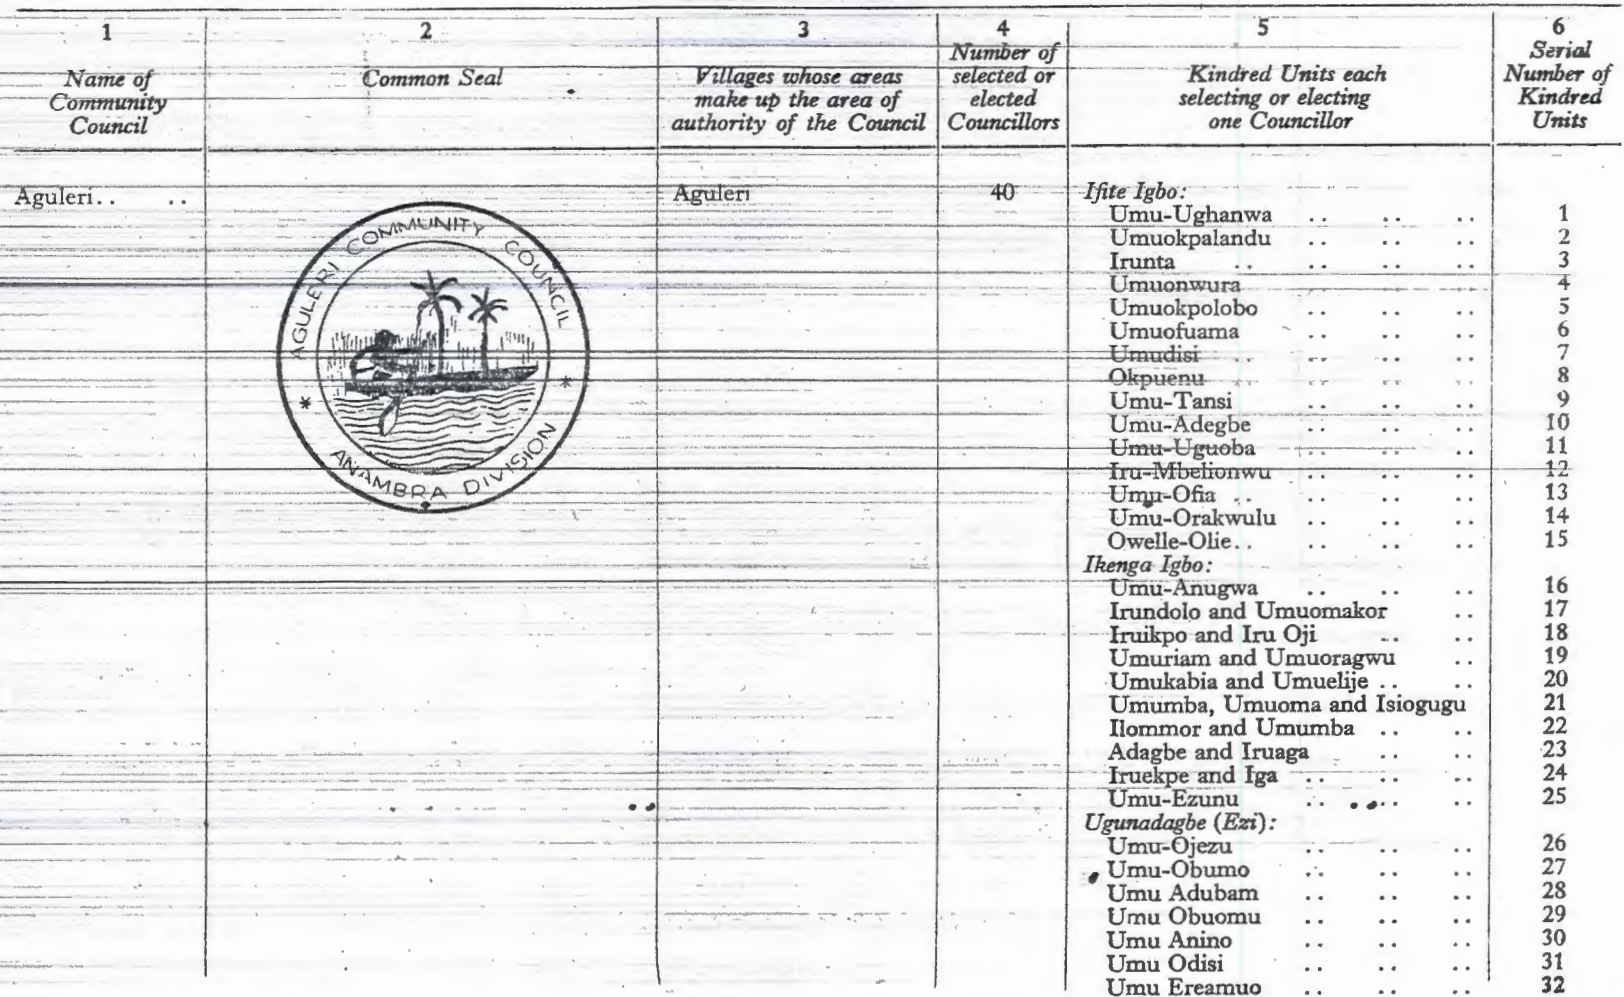 1 2 3 4 5 6
Name of Community Council
Common Seal
Villages whose areas make up the area of authority of the Council
Number of selected or elected Councillors
Kindred Units each selecting or electing one Councillor
Serial Number of Kindred Units
Aguleri.. .. Aguleri 40 Ifite Igbo:
AGULERI COMMUNITY COUNCIL
* *
ANAMBRA DIVISION
Umu-Ughanwa .. .. .. 1
Umuokpalandu .. .. .. 2
Irunta .. .. .. .. 3
Umuonwura 4
Umuokpolobo .. .. .. 5
Umuofuama .. .. .. 6
Umudisi .. .. .. .. 7
Okpuenu .. .. .. .. 8
Umu-Tansi .. .. .. 9
Umu-Adegbe .. .. .. 10
Umu-Uguoba .. .. .. 11
Iru-Mbelionwu .. .. .. 12
Umu-Ofia .. .. .. .. 13
Umu-Orakwulu .. .. .. 14
Owelle-Olie.. .. .. .. 15
Ikenga Igbo:
Umu-Anugwa .. .. .. 16
Irundolo and Umuomakor .. 17
Iruikpo and Iru Oji .. .. 18
Umuriam and Umuoragwu .. 19
Umukabia and Umuelije .. .. 20
Umumba, Umuoma and Isiogugu 21
Ilommor and Umumba .. .. 22
Adagbe and Iruaga .. .. 23
Iruekpe and Iga .. .. .. 24
Umu-Ezunu .. .. .. 25
Ugunadagbe (Ezi):
Umu-Ojezu .. .. .. 26
Umu-Obumo .. .. .. 27
Umu Adubam .. .. .. 28
Umu Obuomu .. .. .. 29
Umu Anino .. .. .. 30
Umu Odisi .. .. .. 31
Umu Ereamuo .. .. .. 32